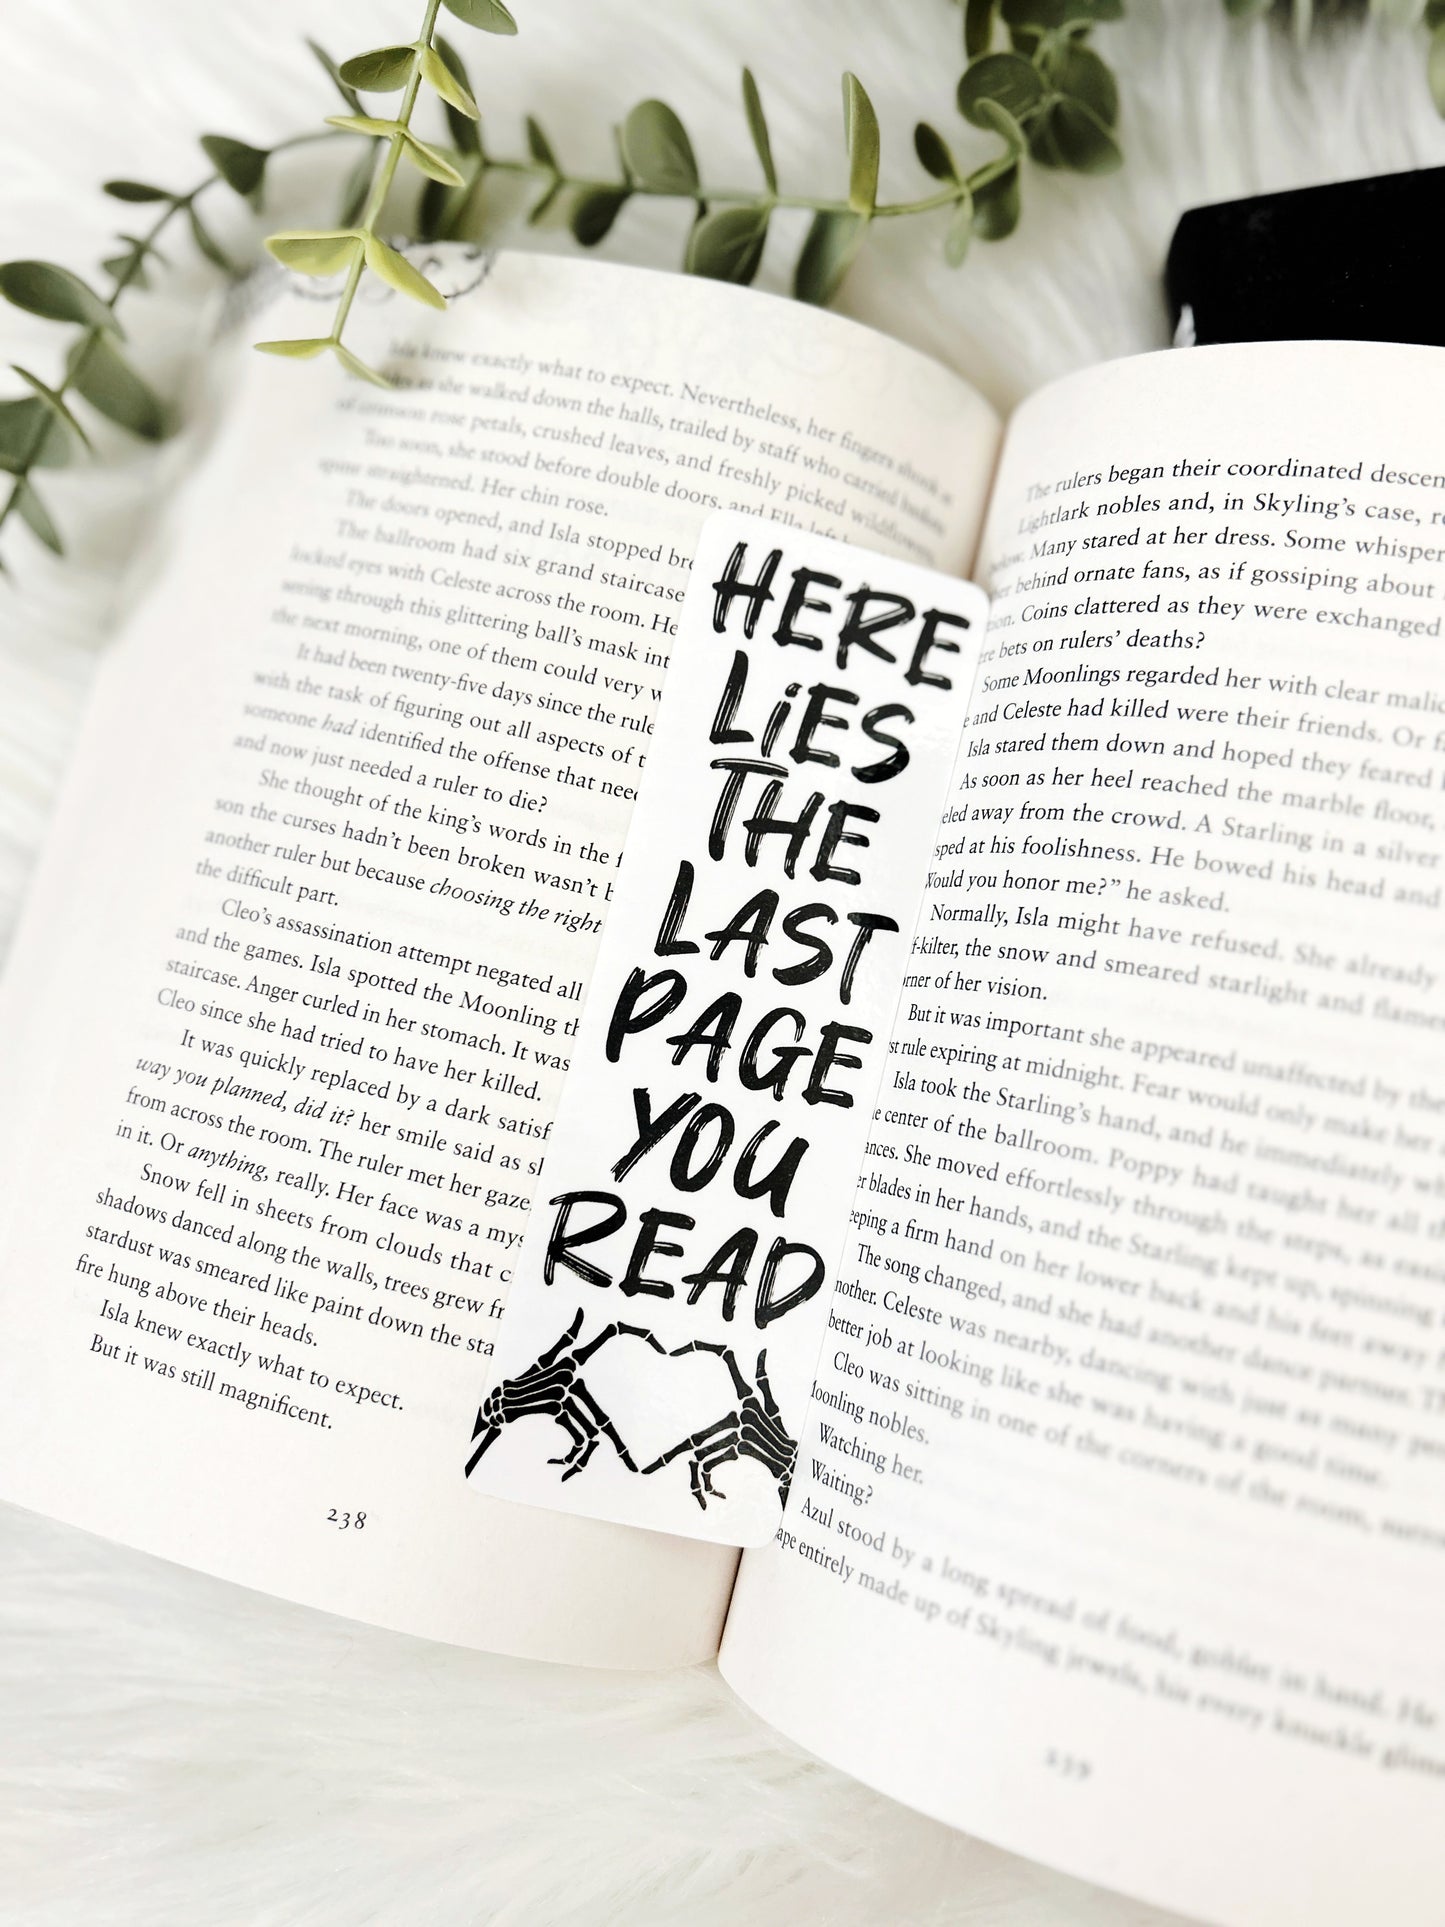 Isla knew exactly what to expect. Nevertheless, her fingers shook
as she walked down the halls, trailed by staff who carried
of crimson rose petals, crushed leaves, and freshly picked wildflowers.
Too soon, she stood before double doors, and Ella left
spine straightened. Her chin rose.
The doors opened, and Isla stopped bre
The ballroom had six grand staircase
locked eyes with Celeste across the room. He
seeing through this glittering ball's mask int
the next morning, one of them could very w
It had been twenty-five days since the rule
with the task of figuring out all aspects of t
someone had identified the offense that need
and now just needed a ruler to die?
She thought of the king's words in the f
son the curses hadn't been broken wasn't b
another ruler but because choosing the right
the difficult part.
Cleo's assassination attempt negated all
and the games. Isla spotted the Moonling th
staircase. Anger curled in her stomach. It was
Cleo since she had tried to have her killed.
It was quickly replaced by a dark satisf
way you planned, did it? her smile said as sl
from across the room. The ruler met her gaze
in it. Or anything, really. Her face was a mys
Snow fell in sheets from clouds that c
shadows danced along the walls, trees grew fr
stardust was smeared like paint down the sta
fire hung above their heads.
Isla knew exactly what to expect.
But it was still magnificent.
238
HERE
LiES
THE
LAST
PAGE
YOU
READ
The rulers began their coordinated descen
Lightlark nobles and, in Skyling's case, r
below. Many stared at her dress. Some whisper
her behind ornate fans, as if gossiping about
tion. Coins clattered as they were exchanged
ere bets on rulers' deaths?
Some Moonlings regarded her with clear malic
e and Celeste had killed were their friends. Or f
Isla stared them down and hoped they feared
As soon as her heel reached the marble floor,
eled away from the crowd. A Starling in a silver
sped at his foolishness. He bowed his head and
Would you honor me?" he asked.
Normally, Isla might have refused. She already
f-kilter, the snow and smeared starlight and flame
rner of her vision.
But it was important she appeared unaffected by the
st rule expiring at midnight. Fear would only make her
Isla took the Starling's hand, and he immediately wh
e center of the ballroom. Poppy had taught her all th
ances. She moved effortlessly through the steps, as easi
er blades in her hands, and the Starling kept up, spinning
eeping a firm hand on her lower back and his feet away
The song changed, and she had another dance partner. Th
nother. Celeste was nearby, dancing with just as many par
better job at looking like she was having a good time.
Cleo was sitting in one of the corners of the room, surro
Moonling nobles.
Watching her.
Waiting?
Azul stood by a long spread of food, goblet in hand. He
ape entirely made up of Skyling jewels, his every knuckle glim
239